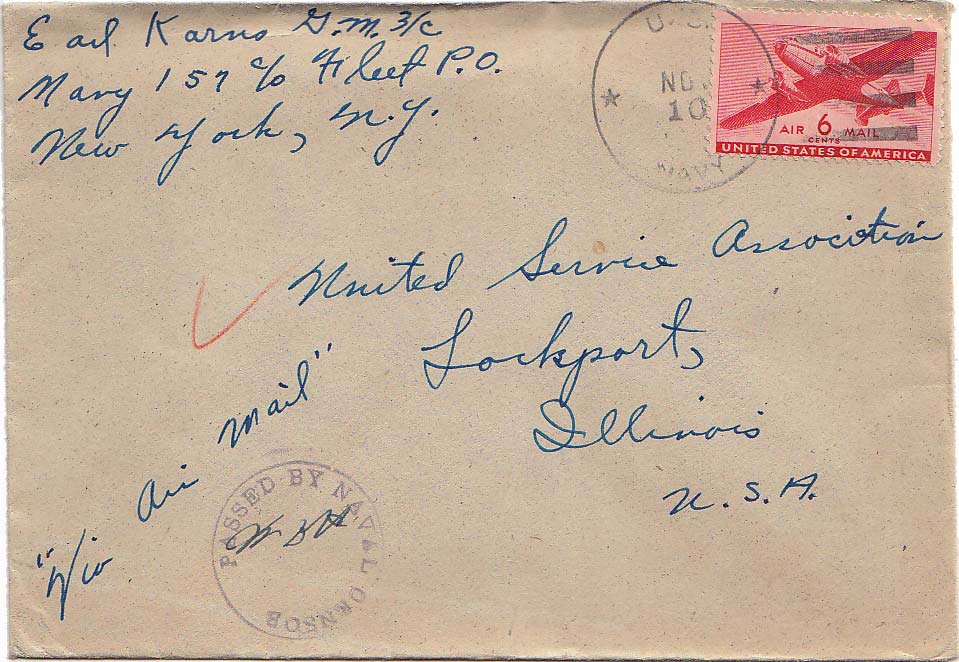 Earl Karns G.M. 3/c
Navy 157 c/o Fleet P.O.
New York, N.Y.
U.S.
NOV
10
NAVY
AIR 6 MAIL
CENTS
UNITED STATES OF AMERICA
United Service Association
Lockport,
Illinois
U.S.A.
"Via Air Mail"
PASSED BY NAVAL CENSOR